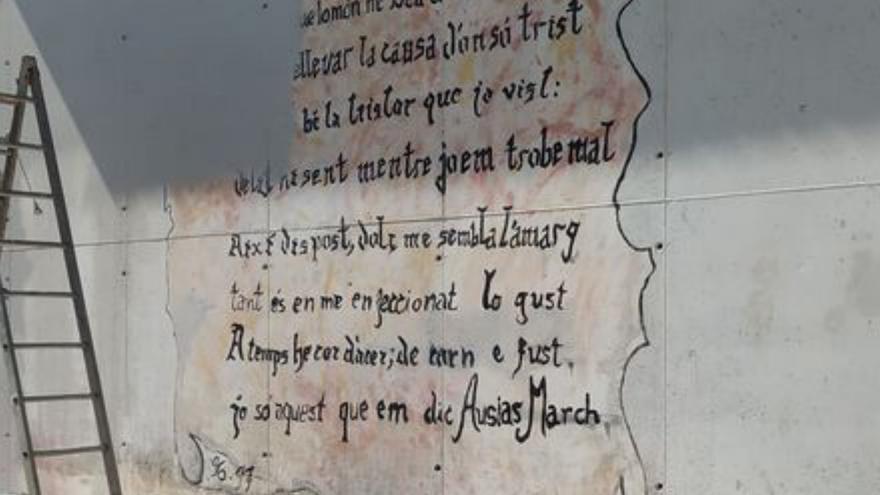 lo món ne
allevar la causa d'on só trist
bé la tristor que jo vist:
sent mentre jo em trobe mal
Així dispost, dolç me sembla l'amarg
tant és en me enfeccionat lo gust
A temps he cor d'acer; de carn e fust.
jo só aquest que em dic Ausias March
96.97